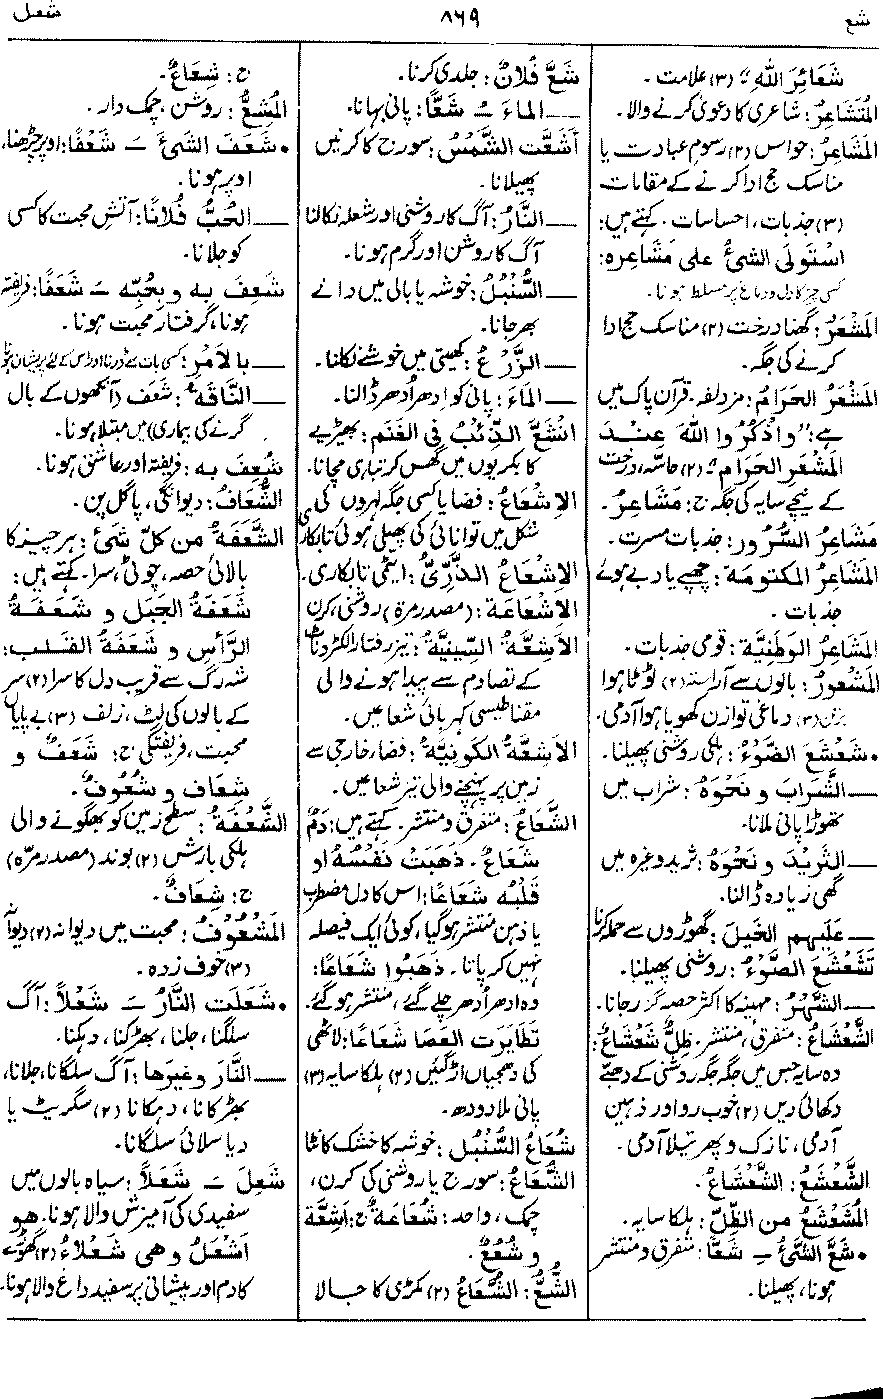 شع
۸۶۹
شعل
شَعَائِرَ اللهِ ؞ (۳) علامت ۔
المُتَشَاعِرُ: شاعری کا دعویٰ کرنے والا۔
المَشَاعِرُ: حواس (۲) رسوم عبادت یا
مناسک حج ادا کرنے کے مقامات
(۳) جذبات، احساسات ۔ کہتے ہیں:
اسْتَولَى الشیُٔ علی مَشَاعِرِه:
کسی چیز کا دل و دماغ پر مسلط ہونا ۔
المَشْعَرُ: گھنا درخت (۲) مناسک حج ادا
کرنے کی جگہ ۔
المَشْعَرُ الحَرَامُ: مزدلفہ۔ قرآن پاک میں
ہے: "وَاذْكُرُوا اللهَ عِنْدَ
المَشْعَرِ الحَرَامِ" (۲) حاسّہ، درخت
کے نیچے سایہ کی جگہ ج: مَشَاعِرُ۔
مَشَاعِرُ السُّرُور: جذبات مسرت ۔
المَشَاعِرُ المَكتومَة: چھپے یا دبے ہوئے
جذبات ۔
المَشَاعِرُ الوَطَنِيَّة: قومی جذبات ۔
المَشعُورُ: بالوں سے آراستہ (۲) ٹوٹا ہوا
برتن (۳) دماغی توازن کھویا ہوا آدمی ۔
• شَعْشَعَ الضَّوْءُ: ہلکی روشنی پھیلنا ۔
— الشَّرَابَ و نَحْوَهُ: شراب میں
تھوڑا پانی ملانا ۔
— الثَّرِيْدَ و نَحْوَهُ: ثرید وغیرہ میں
گھی زیادہ ڈالنا ۔
— عَلَيهِم الخَيلَ: گھوڑوں سے حملہ کرنا
تَشَعْشَعَ الضَّوْءُ: روشنی پھیلنا ۔
— الشَّهْرُ: مہینہ کا اکثر حصہ گزر جانا ۔
الشَّعْشَاعُ: متفرق، منتشر۔ ظِلٌّ شَعْشَاعٌ:
وہ سایہ جس میں جگہ جگہ روشنی کے دھبے
دکھائی دیں (۲) خوب رو اور ذہین
آدمی، نازک و پھرتیلا آدمی ۔
الشَّعْشَعُ: الشَّعْشَاعُ۔
المُشَعْشَعُ مِن الظِّلِّ: ہلکا سایہ ۔
• شَعَّ الشَّیُٔ — شَعًّا: متفرق و منتشر
ہونا، پھیلنا ۔
شَعَّ فُلَانٌ: جلدی کرنا ۔
— الماءَ — شَعًّا: پانی بہانا ۔
أَشَعَّت الشَّمْسُ: سورج کا کرنیں
پھیلانا ۔
— النَّارُ: آگ کا روشنی اور شعلہ نکالنا
آگ کا روشن اور گرم ہونا ۔
— السُّنْبُلُ: خوشہ یا بالی میں دانے
بھر جانا ۔
— الزَّرْعُ: کھیتی میں خوشے نکلنا ۔
— الماءَ: پانی کو اِدھر اُدھر ڈالنا ۔
انْشَعَّ الذِّئْبُ فی الغَنَم: بھیڑیے
کا بکریوں میں گھس کر تباہی مچانا ۔
الإشْعَاعُ: فضا یا کسی جگہ لہروں کی
شکل میں توانائی کی پھیلی ہوئی تابکاری
الإشْعَاعُ الذَّرِّیُّ: ایٹمی تابکاری ۔
الإشْعَاعَة: (مصدر مرہ) روشنی، کرن
الأشِعَّةُ السِّينِيَّة: تیز رفتار الکٹرونات
کے تصادم سے پیدا ہونے والی
مقناطیسی کہربائی شعاعیں ۔
الأشِعَّةُ الكَونِيَّة: فضاء خارجی سے
زمین پر پہنچنے والی تیز شعاعیں ۔
الشَّعَاعُ: متفرق و منتشر۔ کہتے ہیں: دَمٌ
شَعَاعٌ۔ ذَهَبَتْ نَفْسُهُ او
قَلْبُه شَعَاعًا: اس کا دل مضطرب
یا ذہن منتشر ہو گیا، کوئی ایک فیصلہ
نہیں کر پاتا ۔ ذَهَبُوا شَعَاعًا:
وہ ادھر اُدھر چلے گئے، منتشر ہو گئے ۔
تَطَايَرَت العَصَا شَعَاعًا: لاٹھی
کی دھجیاں اڑ گئیں (۲) ہلکا سایہ (۳)
پانی ملا دودھ ۔
شُعَاعُ السُّنْبُل: خوشہ کا خشک کانٹا
الشُّعَاعُ: سورج یا روشنی کی کرن،
چمک، واحد: شُعَاعَةٌ ج: أَشِعَّة
و شُعُعٌ۔
الشُّعُّ: الشُّعَاعُ (۲) مکڑی کا جالا
ج: شِعَاعٌ۔
المُشِعُّ: روشن، چمک دار ۔
• شَعَفَ الشیَٔ — شَعْفًا: اوپر چڑھنا،
اوپر ہونا ۔
— الحُبُّ فُلَانًا: آتش محبت کا کسی
کو جلانا ۔
شَعِفَ به و بِحُبِّه — شَعَفًا: فریفتہ
ہونا، گرفتار محبت ہونا ۔
— بالأمْرِ: کسی بات سے ڈرنا اور اس کے لئے پریشان ہونا
— النَّاقَةُ: شَعَف (آنکھوں کے بال
گرنے کی بیماری) میں مبتلا ہونا ۔
شُعِفَ به: فریفتہ اور عاشق ہونا ۔
الشُّعَافُ: دیوانگی، پاگل پن ۔
الشَّعَفَةُ مِن كلِّ شَیْءٍ: ہر چیز کا
بالائی حصہ، چوٹی، سرا۔ کہتے ہیں:
شَعَفَةُ الجَبَل و شَعَفَةُ
الرَّأس و شَعَفَةُ القَلب:
شہ رگ سے قریب دل کا سرا (۲) سر
کے بالوں کی لٹ، زلف (۳) بے پایاں
محبت، فریفتگی ج: شَعَفٌ و
شِعَاف و شُعُوفٌ۔
الشَّعْفَةُ: سطح زمین کو بھگونے والی
ہلکی بارش (۲) بوند (مصدر مرّہ)
ج: شِعَافٌ۔
المَشْعُوْفُ: محبت میں دیوانہ (۲) دیوانہ
(۳) خوف زدہ ۔
• شَعَلَت النَّارُ — شَعْلًا: آگ
سلگنا، جلنا، بھڑکنا، دہکنا ۔
— النَّارَ وغیرَها: آگ سلگانا، جلانا،
بھڑکانا، دہکانا (۲) سگریٹ یا
دیا سلائی سلگانا ۔
شَعِلَ — شَعَلًا: سیاہ بالوں میں
سفیدی کی آمیزش والا ہونا ۔ هو
أَشْعَلُ وهی شَعْلَاءُ (۲) گھوڑے
کا دم اور پیشانی پر سفید داغ والا ہونا ۔